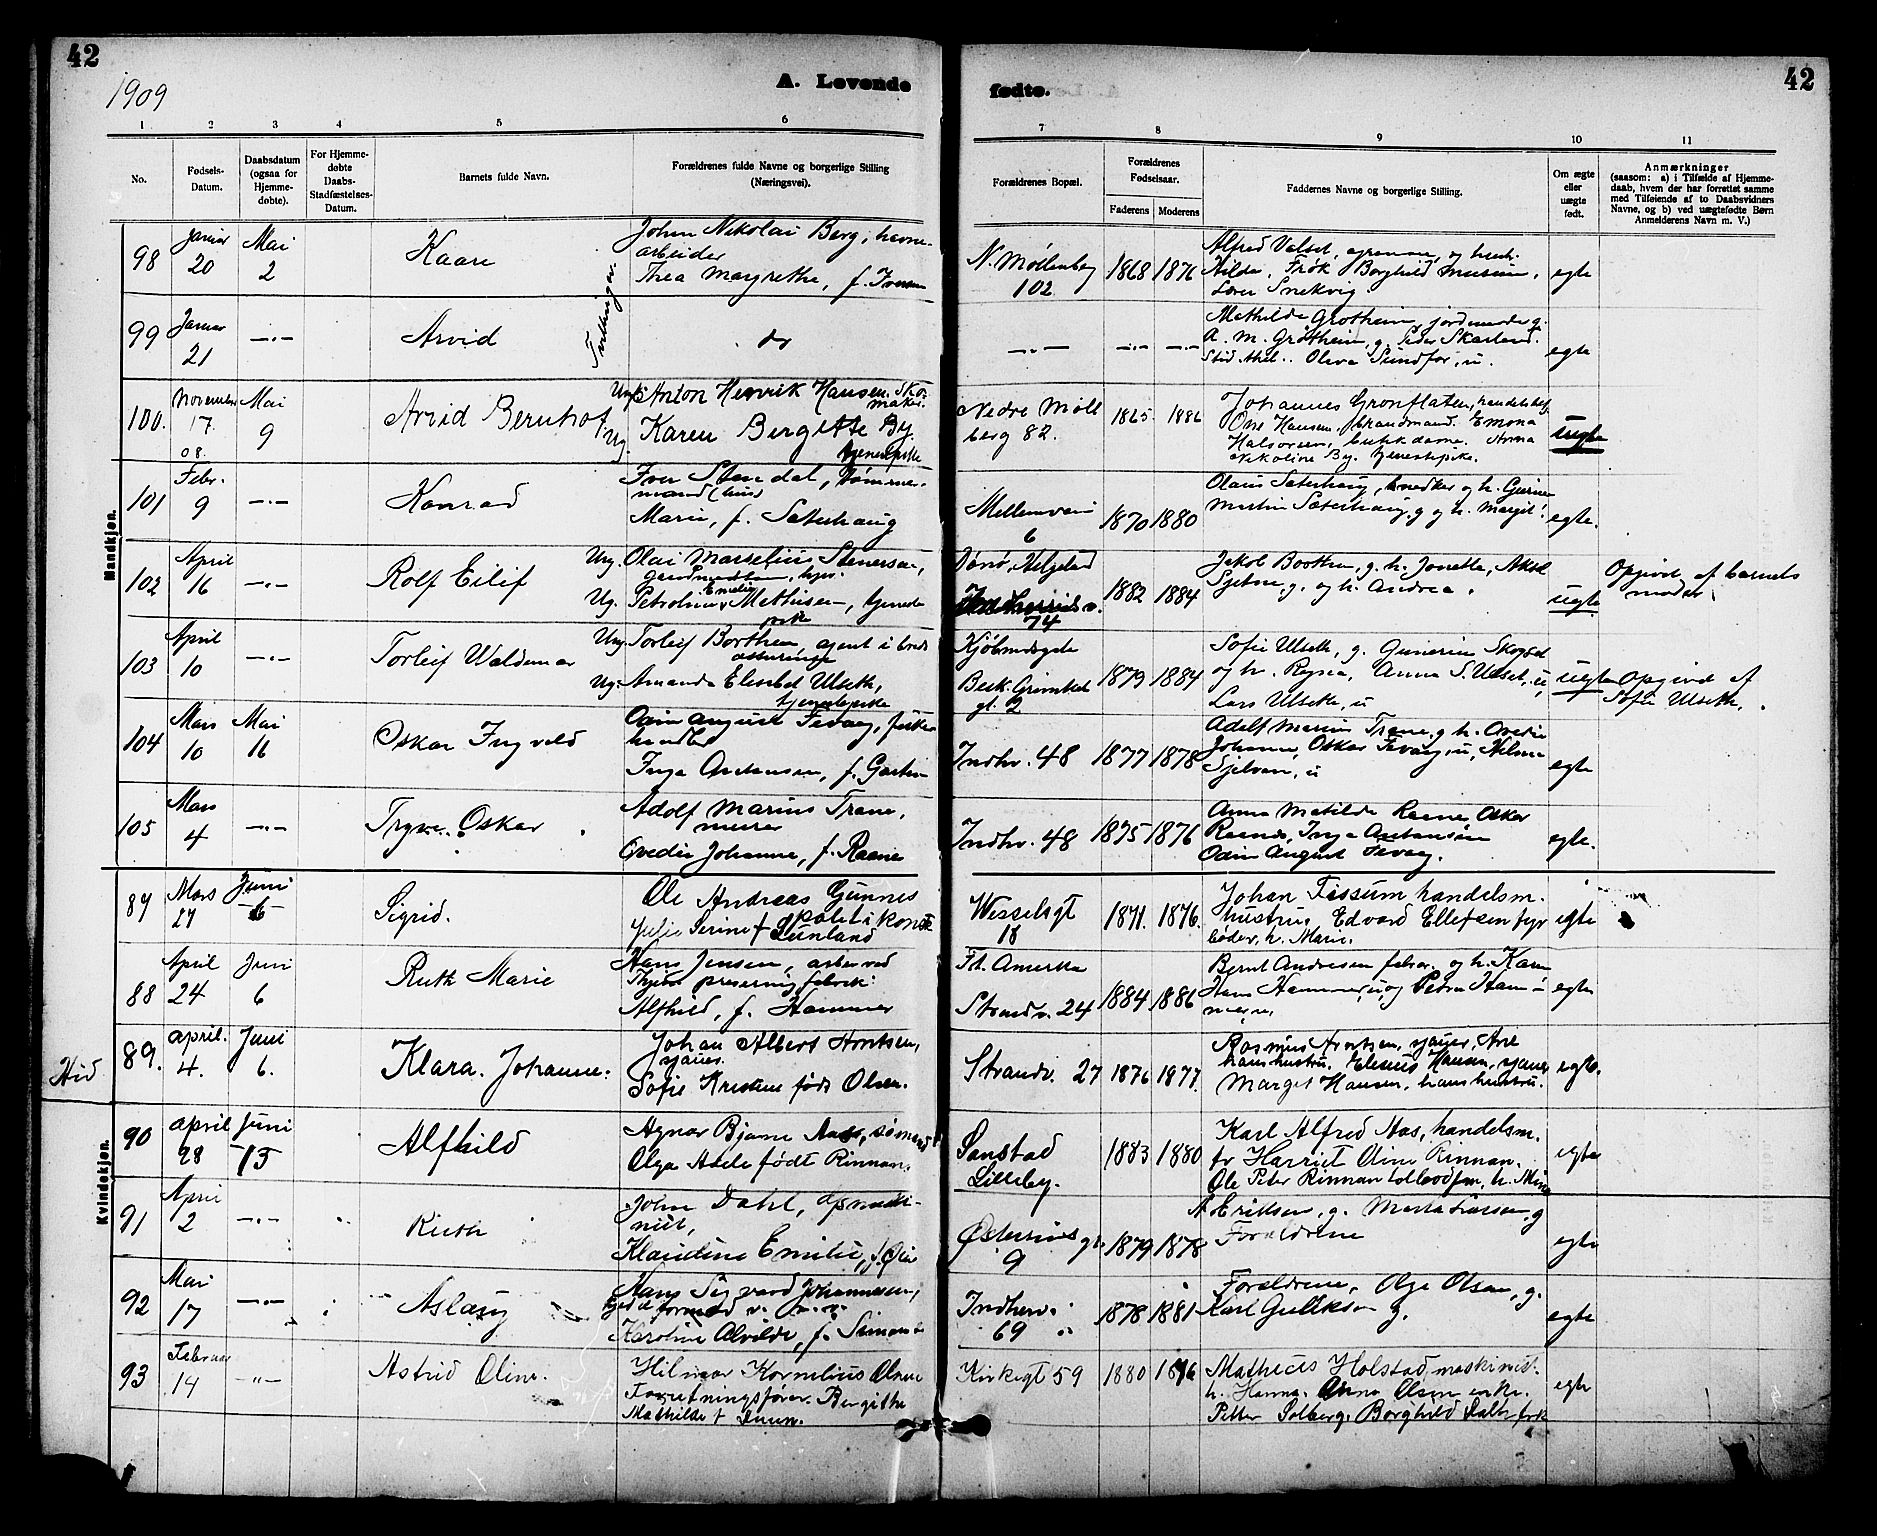 42
1909
A. Levende
fødte.
42
1 2 3 4 5 6 7 8 9 10 11
No.
Fødsels-Datum.
Daabsdatum (ogsaa for Hjemme-døbte).
For Hjemme-døbte Daabs-Stadfæstelses-Datum.
Barnets fulde Navn.
Forældrenes fulde Navne og borgerlige Stilling (Næringsvei).
Forældrenes Bopæl.
Forældrenes Fødselsaar.
Faderens Moderens
Faddernes Navne og borgerlige Stilling.
Om ægte eller uægte født.
Anmærkninger
(saasom: a) i Tilfælde af Hjemme-daab, hvem der har forrettet samme med Tilføiende af to Daabsvidners Navne, og b) ved uægtefødte Børn Anmelderens Navn m. V.)
Mandkjøn.
98 Januar 20 Mai 2 Kaare
Johan Nikolai Berg, havne-
arbeider
Thea Margrethe, f. Iversen
N. Møllenberg 102 1868 1876
Alfred Valset, og hust.
Hilda, Frøk Borghild
Lærer Snekvig.
egte
Tvillinger
99 Januar 21 —"— Arvid do
—"— —"— —"—
Mathilde Grøtheim, jordmoder g.
A. M. Grøtheim, g. Peder Skarland.
Oluva Sundfør, u.
egte
100. November 17. 08. Mai 9 Arvid Bernhof.
Ung. Anton Henrik Hansen. Sko-
maker.
Ug. Karen Bergitte By.
tjenestepike
Nedre Møll
berg 82. 1865. 1886
Johannes Grønflaten, handelsbetj.
One Hansen, brandmand. Emona
Halvorsen, butikdame. Anna
Nikoline By. tjenestepike.
uegte
101 Febr. 9 —"— Konrad
Iver Stendal, tømmer-
mand (hus)
Marie, f. Sæterhaug
Mellemveien
6 1870 1880
Olaus Sæterhaug, snedker og h. Gurine
Martin Sæterhaug, g og h. Margit.
egte.
102 April 16 —"— Rolf Eilif
Ung. Olai Marselius Stenersen,
Ug. Petroline Emelie Mathisen, tjeneste
pike
Dønø, Helgeland
74 1882 1884
Jakob Boothen, g. h. Jonetta, Aksel
Sjetne, g. og h. Andrea.
uegte
Opgivd af barnets
moder.
103 April 10 —"— Torleif Waldemar
Ung. Torleif Borthen agent i brand
assurance
Ug. Amanda Elisabet Ulseth,
tjenestepike
Kjøbmdsgate
Besk. Grinikel
gt. 2 1879 1884
Sofie Ulseth, g. Gunerius Skogset
og h. Regna, Anna S. Ulset, u,
Lars Ulseth, u
uegte
Opgivd af
Sofie Ulseth.
104 Mars 10 Mai 16 Oskar Ingvald
Odin August Tevaag, fiske
handler
Inga Antonsen, f.
Indhv. 48 1877 1878
Adolf Marius Trane, g h. Ovedie
Johanne, Oskar Tevaag, u, Nilsine
Sjelvan, u
egte
105 Mars 4 —"— Trygve Oskar
Adolf Marius Trane,
murer
Ovedie Johanne, f. Raane
Indhv. 48 1875 1876
Anna Matilde Raane Oskar
Raane, Inga Antonsen
Odin August Tevaag.
egte.
Kvindekjøn.
87 Mars 27 Juni 6 Sigrid.
Ole Andreas Gunnes
politikonst
Julie Serine f. Sunland
Wesselsgt
18 1871. 1876.
Johan Fissum handelsm.
hustru, Edvard Ellefsen fyr
bøder, h. Marie.
egte
88 April 24 Juni 6 Ruth Marie
Hans Jensen, arb. ved
preserving fabrik
Alfhild, f. Hammer
Ft. Amerika
Strandv. 24 1884 1886
Bernt Andresen og h. Karen
Hans Hammer, u, og Petra Ham-
mer, u.
egte
Hid
89. april. 4. Juni 6. Klara. Johanne.
Johan Albert Arntsen,
sjauer.
Sofie Kristine født Olsen.
Strandv. 27 1876 1877.
Rasmus Arntsen, sjauer, Ane
hans hustru. Elenius Hansen, sjauer,
Marget Hansen, hans hustru.
egte.
90 april 28 Juni 13 Alfhild
Agnar Bjarne Aas, sømand
Olga Adele født Rinnan.
Sanstad
Lilleby. 1883 1880
Karl Alfred Aas, handelsm.
fr Harriet Oline Rinnan.
Ole Peter Rinnan toldbodfm, h. Mina
egte
91 April 2 —"— Ruth
John Dahl, opsnedk-
Klaudine Emilie, f. Øie
Østersunds gt.
9 1879 1878
A Eriksen, g. Marta Larsen, g
Forældrene
egte
92 Mai 17 —"— Aslaug
Hans Sigvard Johannessen,
formand v.
Karoline Alvilde, f. Simonsen
Indherv.
69 1878 1881
Forældrene, Olga Olsen, g.
Karl Gulliksen g.
egte
93 Februar 14 —"— Astrid Oline.
Hilmar Kornelius Olsen
Forretningsfører. Bergithe
Mathilde f. Duun.
Kirkegt 59 1880 1876
Matheus Holstad, maskinist.
h. Hanna. Anna Olsen enke.
Petter Solberg. Borghild Dalb frk
egte